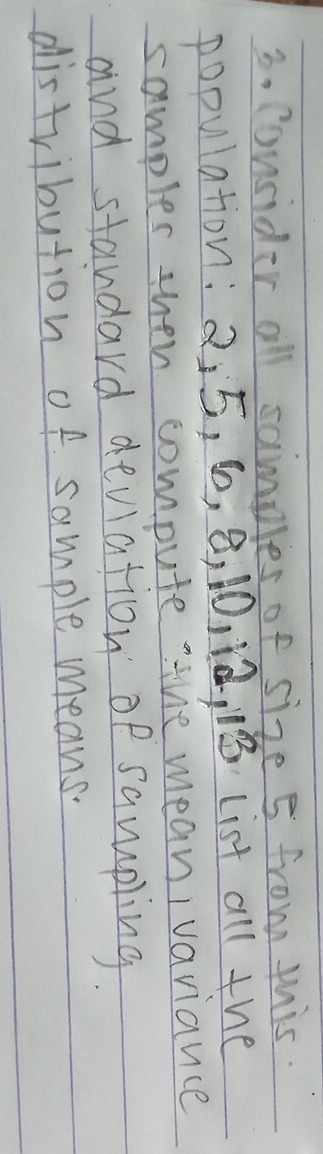 3. Consider all samples of size 5 from this.
population: 2, 5, 6, 8, 10, 12, 13. List all the
samples then compute the mean, variance
and standard deviation of sampling
distribution of sample means.